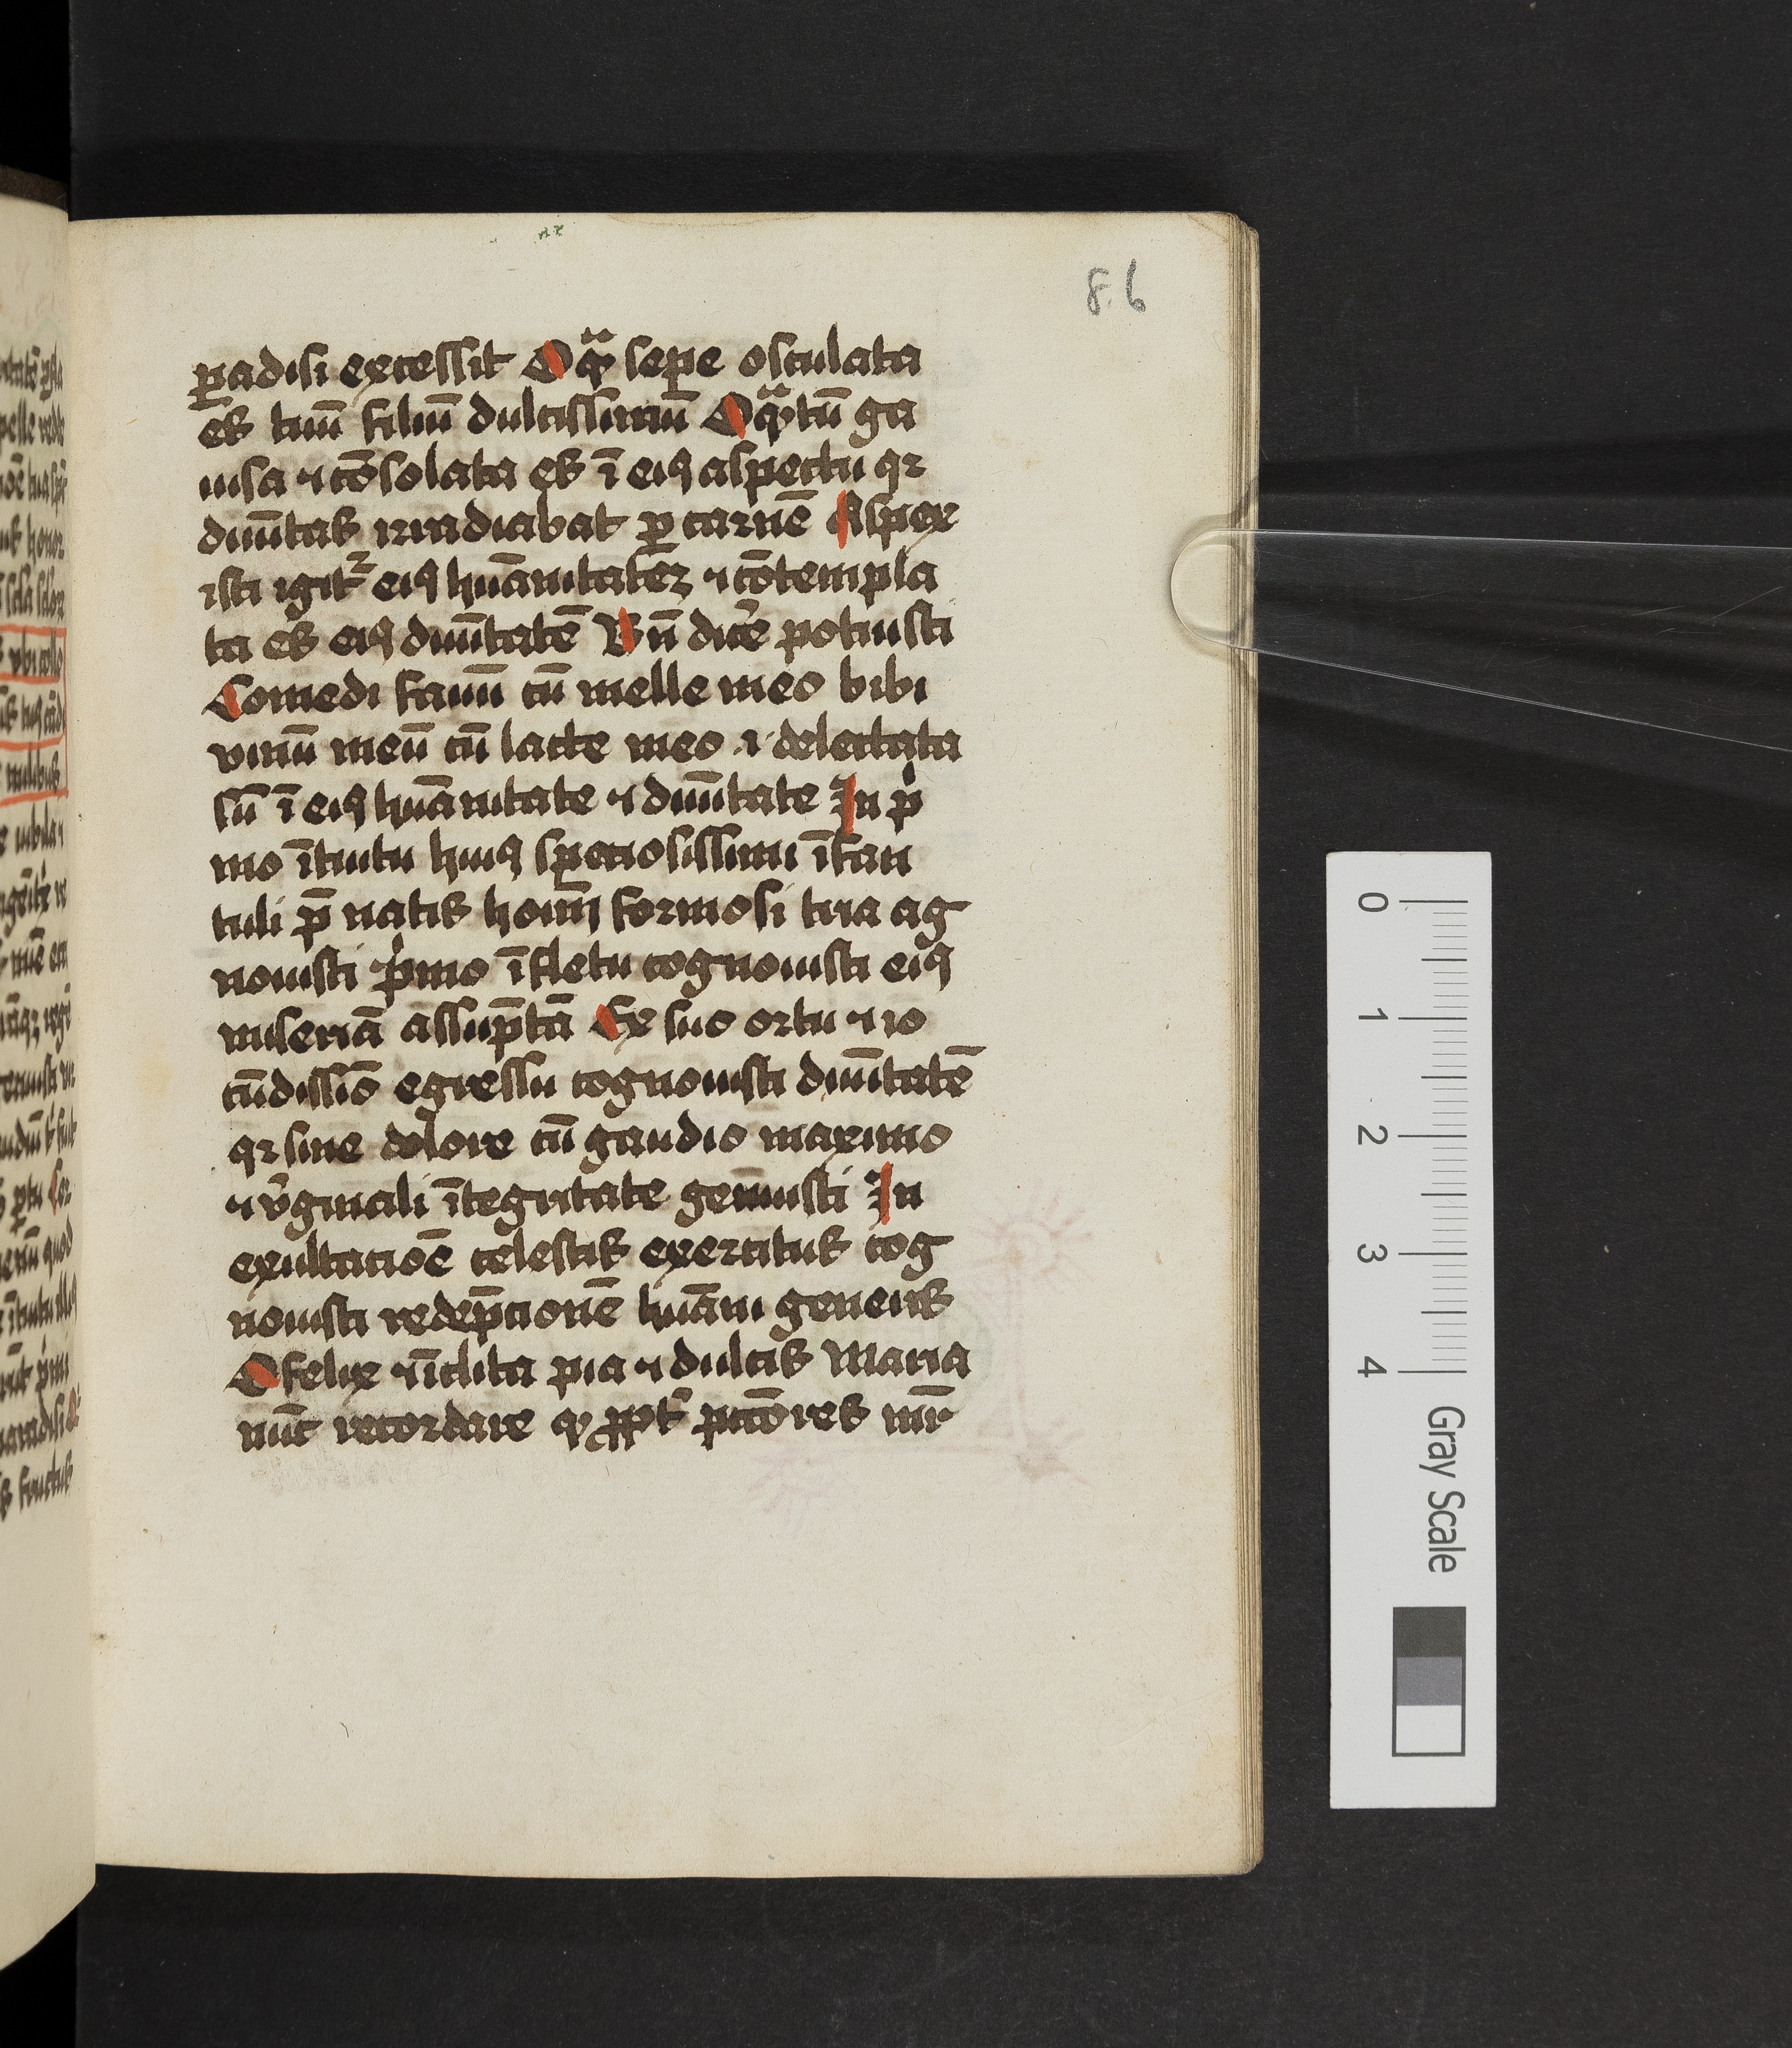 86
ꝑadisi excessit O qͣ sepe osculata
es tuū filiū dulcissimū O qͣtū ga
uisa ⁊ cōsolata es ī eiꝯ aspectu qꝛ
diuītas irradiabat ꝑ carnē Aspex
isti igit᷑ eiꝯ huāmitateꝫ ⁊ cōtempla
ta es eiꝯ diuītatē Vn̄ dicē potuisti
Comedi fauū cū melle meo bibi
vinū meū cū lacte meo ⁊ delectata
sū ī eiꝯ huāitate ⁊ diuītate In p̍
mo ītuitu huiꝯ speciosissimi īfan
tuli p̄ natis hoīm formosi
ag
nouisti p̍mo ī fletu cognouisti eiꝯ
miseriā assūptā Ex suo ortu ⁊ io
cūdissīo egressu cognouisti diuītatē
qꝛ sine dolore cū gaudio maximo
⁊ v̓ginali ītegritate genuisti In
exultacioē celestis exercitus cog
nouisti redēpcionē huāni generis
O felix ⁊ īclita pia ⁊ dulcis Maria
nūc recordare ꝙ ꝓpt᷑ pccōres